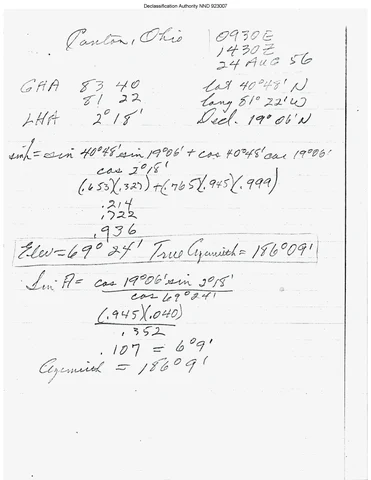 Declassification Authority NND 923007
Canton, Ohio
0930E
1430Z
24 AUG 56
GHA 83 40
81 22
LHA 2°18'
Lat 40°48' N
Long 81° 22' W
Decl. 19°06' N
sin h = sin 40°48' sin 19°06' + cos 40°48' cos 19°06'
cos 2°18'
(.653)(.327) + (.765)(.945)(.999)
.214
.722
.936
Elev = 69° 24' True Azimuth = 186°09'
Sin A = cos 19°06' sin 2°18'
cos 69°24'
(.945)(.040)
.352
.107 = 6°9'
Azimuth = 186°9'